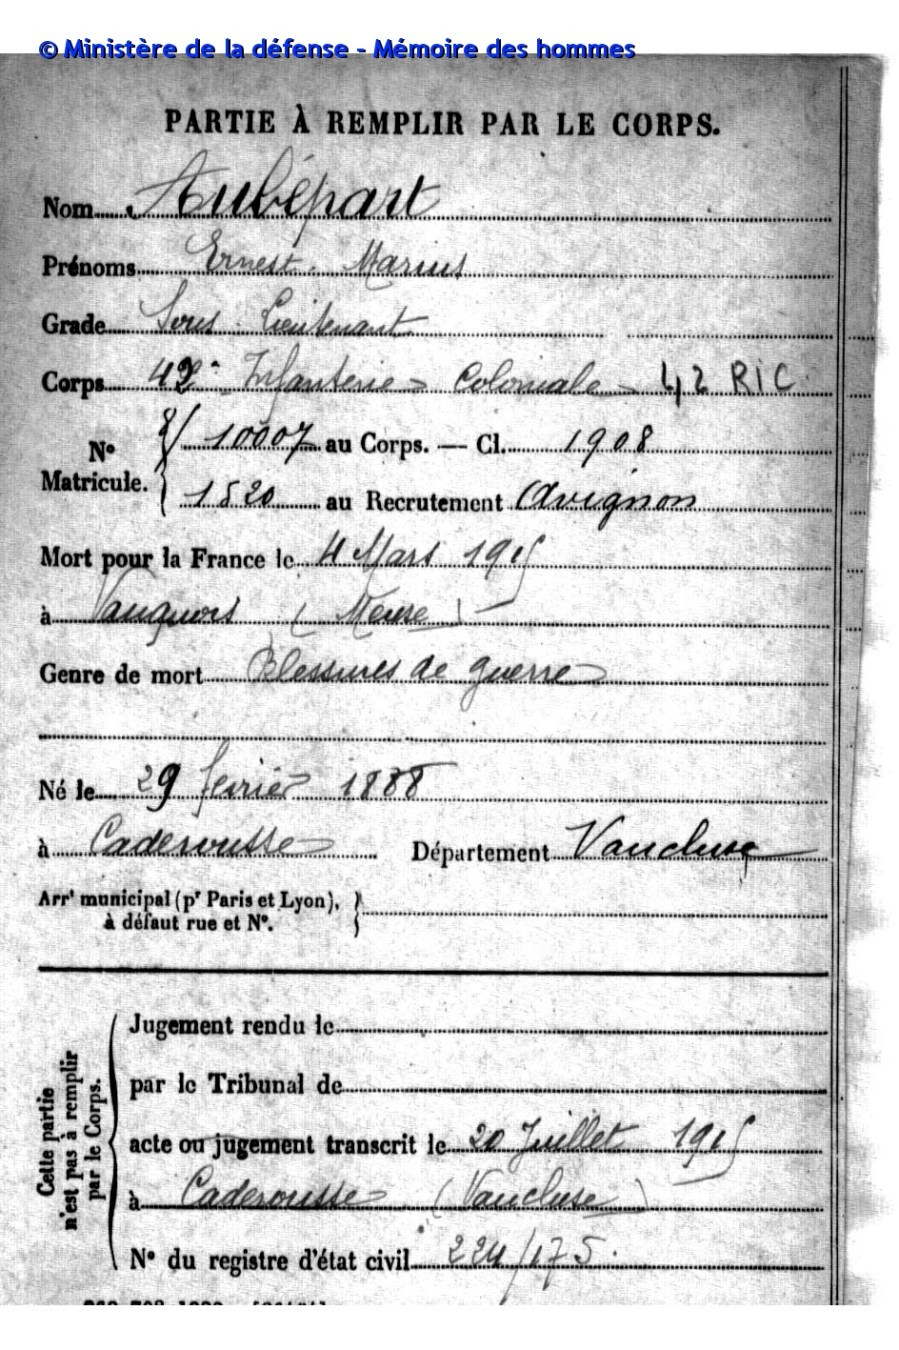 © Ministère de la défense - Mémoire des hommes
PARTIE À REMPLIR PAR LE CORPS.
Nom Aubépart
Prénoms Ernest Marius
Grade Sous Lieutenant
Corps 42e Infanterie Coloniale 42 RIC
N° Matricule. 10007 au Corps. — Cl. 1908
1520 au Recrutement Avignon
Mort pour la France le 4 Mars 1915
à Vauquois (Meuse)
Genre de mort Blessures de guerre
Né le 29 février 1888
à Caderousse Département Vaucluse
Arrt municipal (pr Paris et Lyon),
à défaut rue et N°.
Cette partie
n'est pas à remplir
par le Corps.
Jugement rendu le
par le Tribunal de
acte ou jugement transcrit le 20 Juillet 1915
à Caderousse (Vaucluse)
N° du registre d'état civil 224/175.